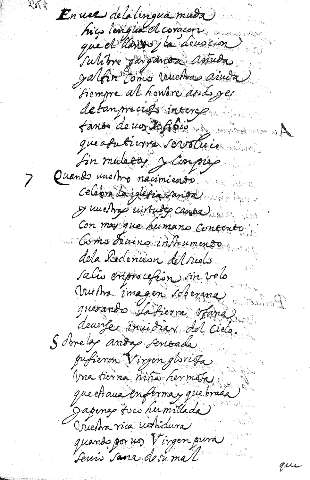 En vez de la lengua muda
hizo lengua el coraçon
que el llanto y la devocion
su libre garganta ayuda
y al fin como vuestra ayuda
siempre al hombre
de tan preciso interes
tanto de vos
que a su tierra se volvio
sin muletas y con pies
7
Quando vuestro nacimiento
celebra la iglesia santa
y vuestras virtudes canta
con mas que humano contento
como divino instrumento
de la Redencion del suelo
salio en procession sin velo
vuestra imagen soberana
quedando la tierra ufana
de verse invidiar del Cielo.
Sobre las andas sentada
pusieron Virgen gloriosa
una tierna niña hermosa
que estava enferma y quebrada
y apenas toco humillada
vuestra rica vestidura
quando por vos Virgen pura
se vio sana de su mal
que